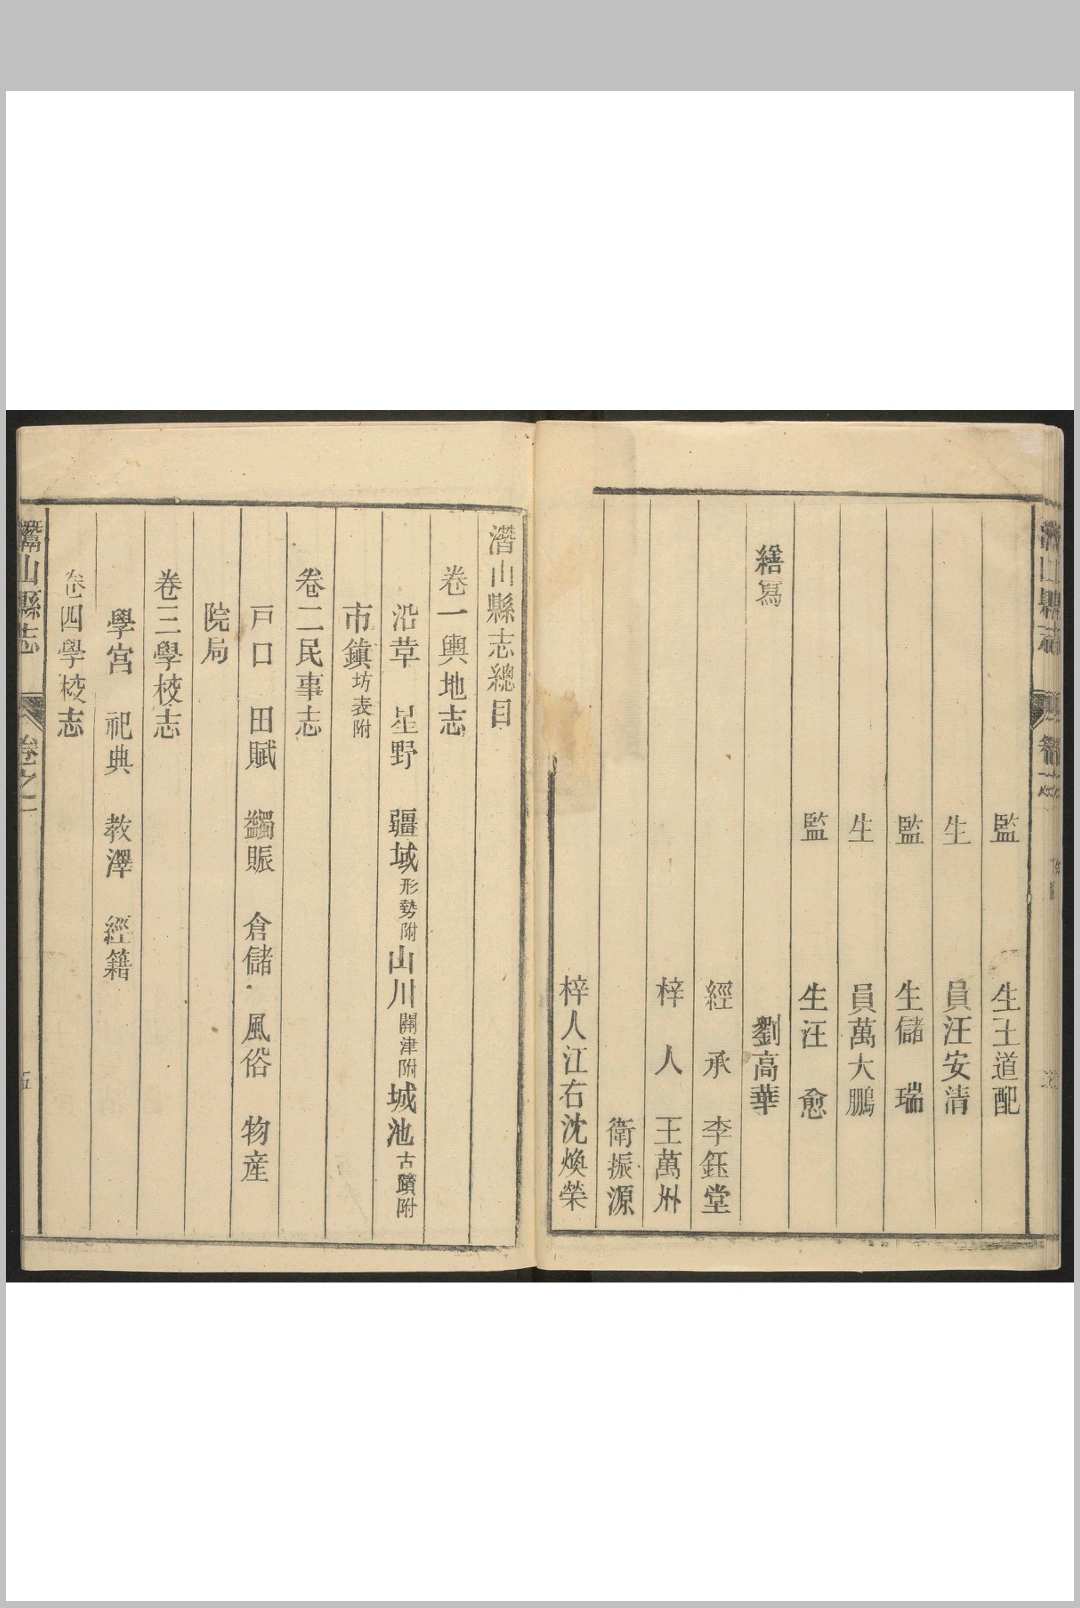 監 生王道配
生 員汪安清
監 生儲 瑞
生 員萬大鵬
監 生汪 愈
繕寫 劉高華
經 承 李鈺堂
梓 人 王萬州
衛振源
梓人江右沈煥榮
潛山縣志總目
卷一輿地志
沿革 星野 疆域形勢附山川關津附城池古蹟附
市鎮坊表附
卷二民事志
戸口 田賦 蠲賑 倉儲 風俗 物産
院局
卷三學校志
學宫 祀典 教澤 經籍
卷四學校志
山縣志 卷之一 五